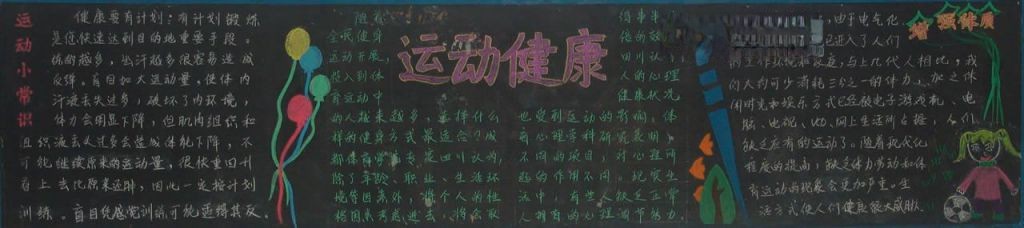 运动小常识
健康要有计划：有计划锻炼
是您快速达到目的地重要手段。
练的越多，出汗越多很容易造成
反弹，盲目加大运动量，使体内
汗液丢失过多，破坏了内环境，
体力会明显下降，但肌肉组织和
组织液丢失过多会造成体能下降，不
可能继续原来的运动量，很快重回到
看上去比原来还胖，因此一定按计划
训练。盲目凭感觉训练可能适得其反。
运动健康
随着
全民健身
运动开展，
些人到体
育运动中
的人越来越多，
样的健身方式最适合
除了年龄、职业、生活环
境等因素外，将个人的性
格因素考虑进去，将会取
得事半
倍的效
四川认
人的心理
健康状况
也受到运动的影响，体
育心理学科研究表明，
不同的项目，对心理所
起的作用不同。现实生
活中，有些人缺乏正常
人则有的心理调节能力，
增强体质
，由于电气化
已进入了人们
的工作环境和家庭，与上几代人相比，我
们大约可少消耗三分之一的体力，加之休
闲时光和娱乐方式已经被电子游戏机、电
脑、电视、VCD、网上生活所占据，人们
缺乏应有的运动了。随着现代化
程度的提高，缺乏体力劳动和体
育运动的现象会更加严重。生
活方式使人们健康很大威胁。